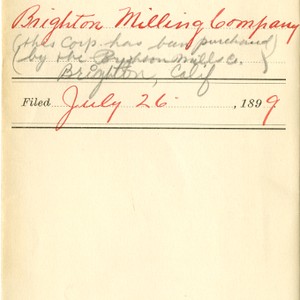 Brighton Milling Company
(this Corp. has been purchased)
(by the Brighton Mills Co.
Brighton, Calif
Filed July 26 , 1899